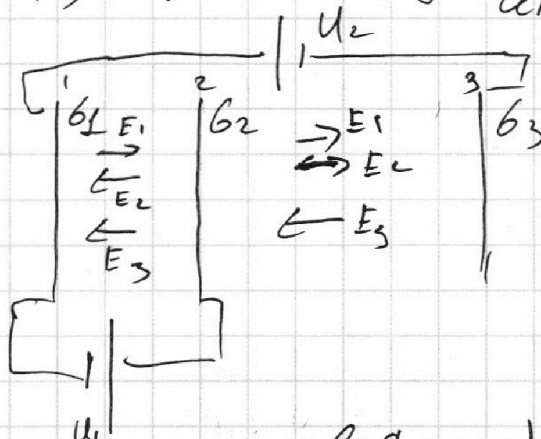 U₂
1 2 3
б1 E₁ б2 E₁ б3
E₂ E₂
E₃ E₃
U₁